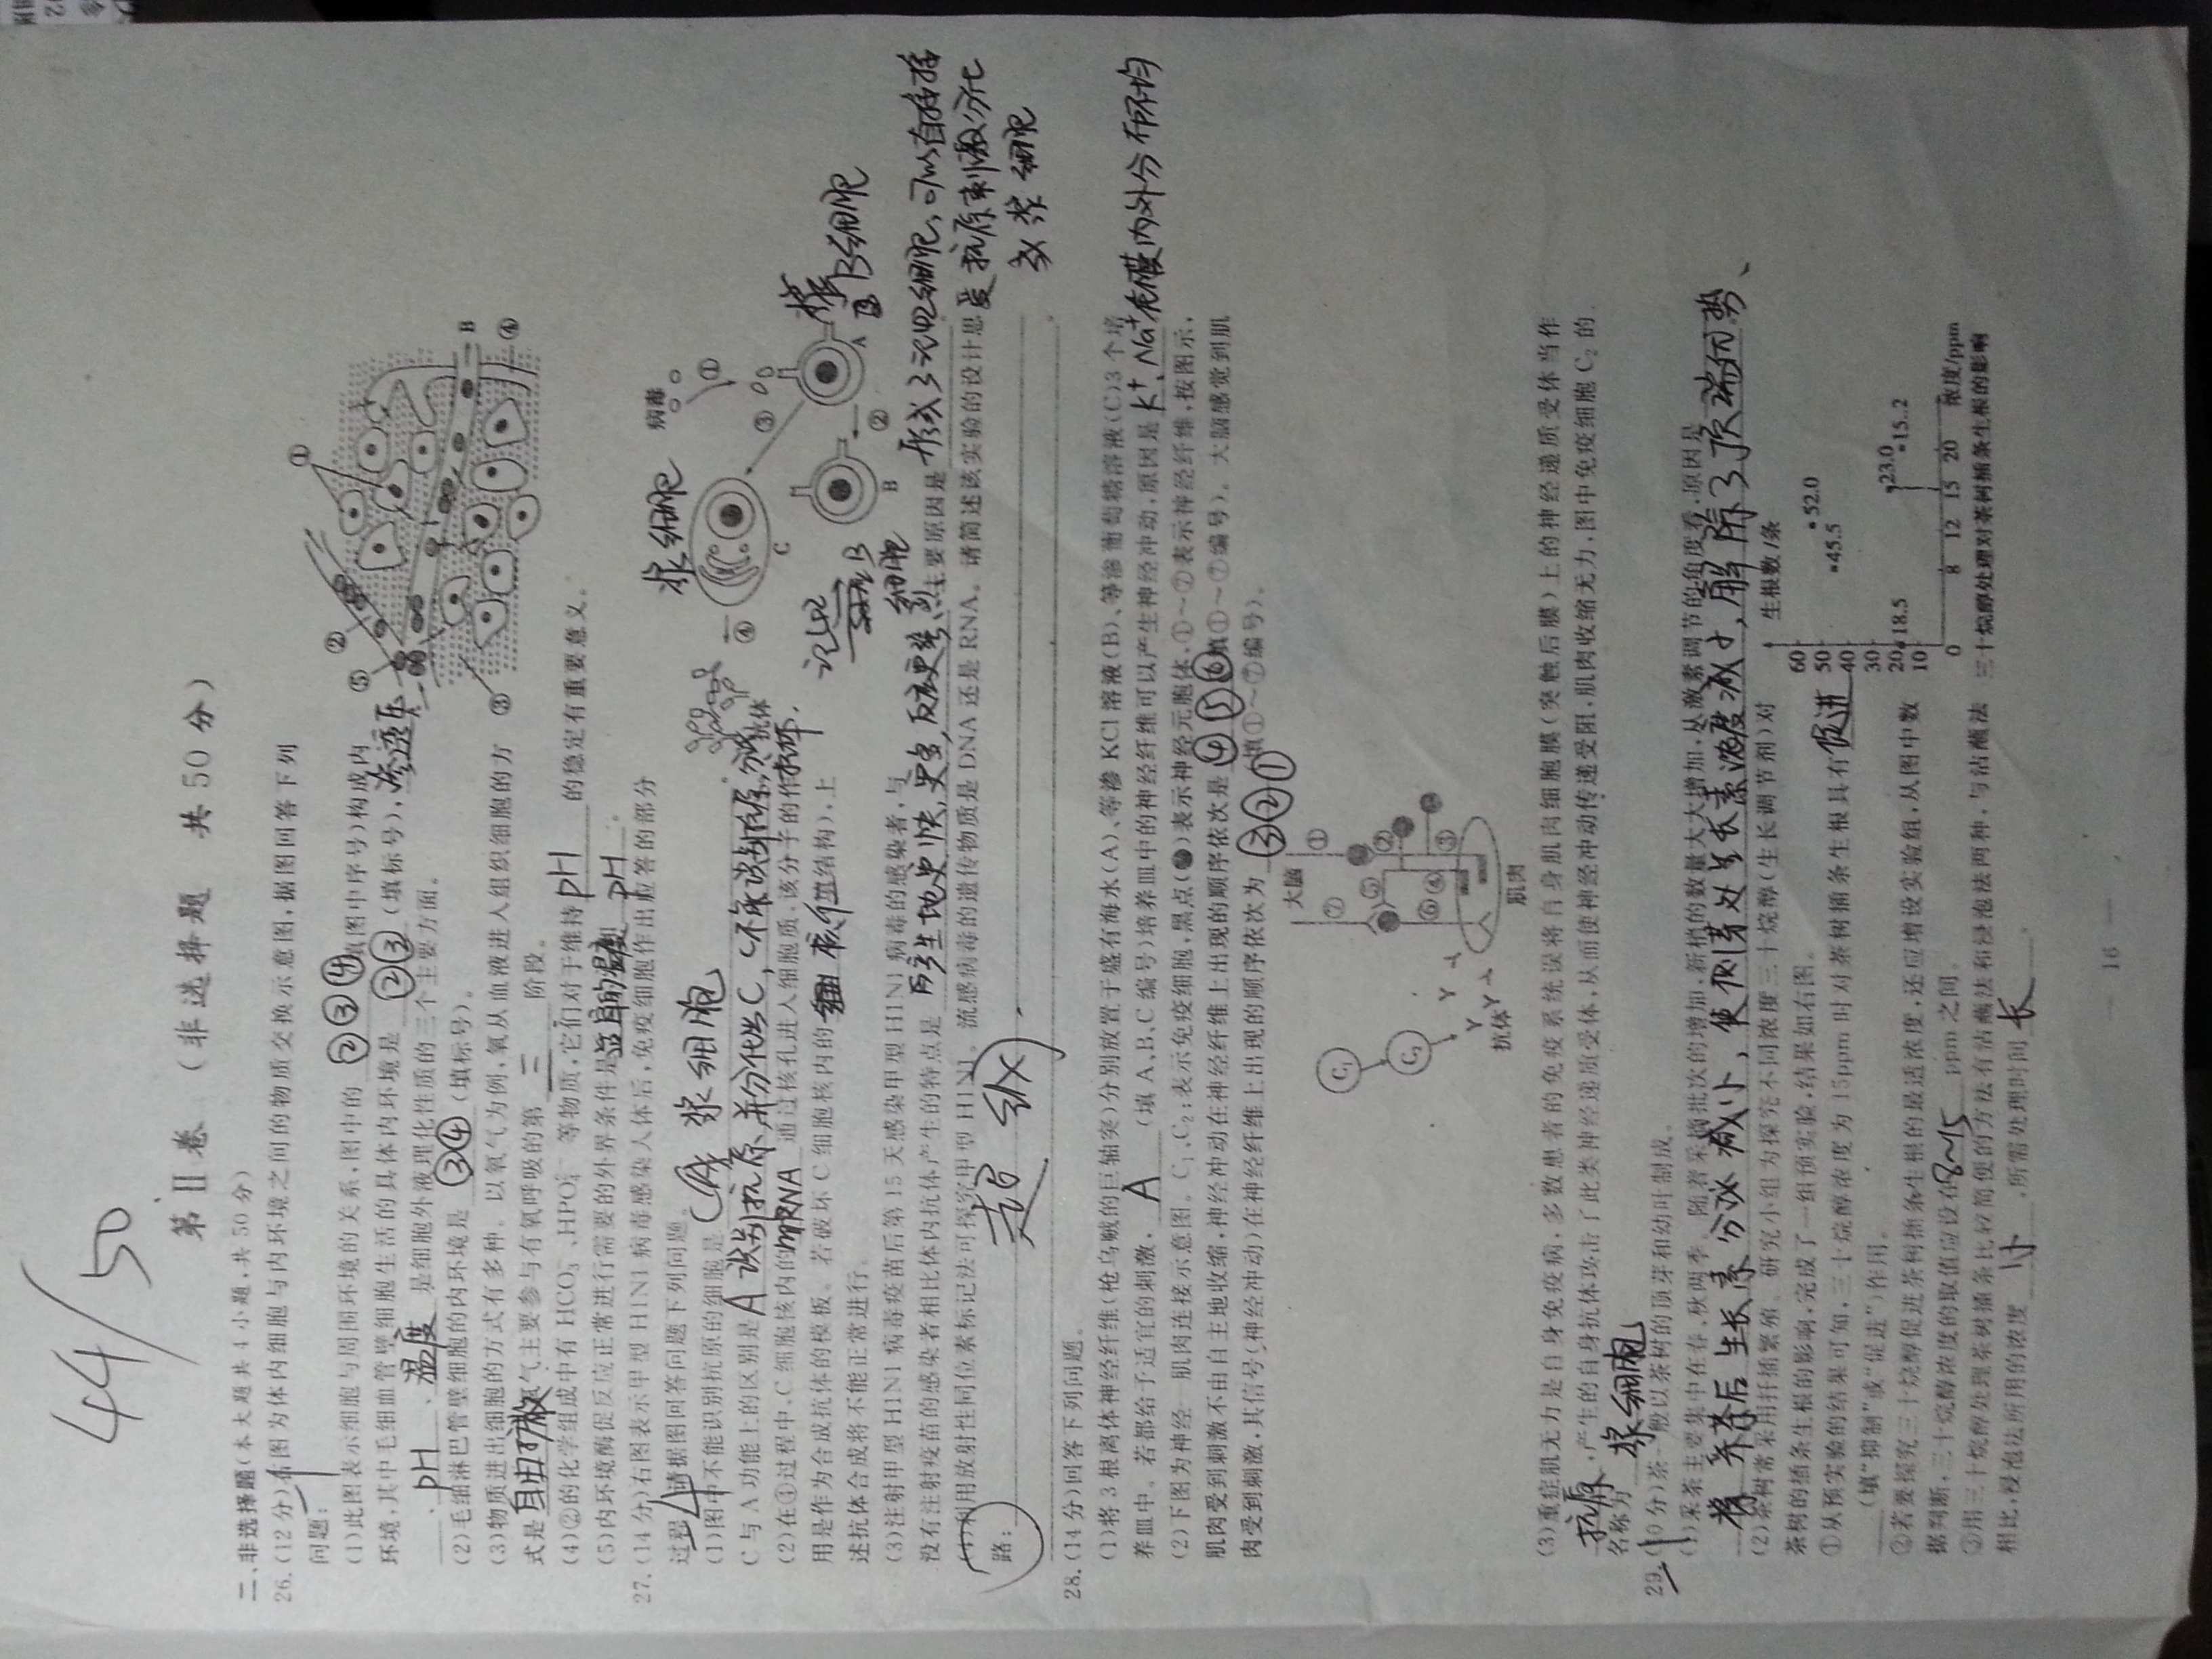 44/50
第Ⅱ卷 (非选择题 共50分)
二、非选择题(本大题共4小题,共50分)
26.(12分)右图为体内细胞与内环境之间的物质交换示意图,据图回答下列
-1
问题:
(1)此图表示细胞与周围环境的关系,图中的 ②③④ 填图中序号)构成内
环境,其中毛细血管壁细胞生活的具体内环境是 ②③ (填标号),渗透压
、pH、温度 是细胞外液理化性质的三个主要方面。
(2)毛细淋巴管壁细胞的内环境是 ③④ (填标号)。
(3)物质进出细胞的方式有多种。以氧气为例,氧从血液进入组织细胞的方
式是 自由扩散 氧气主要参与有氧呼吸的第 三 阶段。
(4)②的化学组成中有 HCO₃⁻、HPO₄²⁻ 等物质,它们对于维持 pH 的稳定有重要意义。
(5)内环境酶促反应正常进行需要的外界条件是 适宜的温度 pH 。
① ② ⑤ ③ B ④
27.(14分)右图表示甲型 H1N1 病毒感染人体后,免疫细胞作出应答的部分
-4
过程,请据图回答问题下列问题。
(1)图中不能识别抗原的细胞是 C 浆细胞
C与A功能上的区别是 A识别抗原,并分化出C,C不能识别抗原,分泌
抗体.
(2)在④过程中,C细胞核内的 mRNA 通过核孔进入细胞质,该分子的作
用是作为合成抗体的模板。若破坏C细胞核内的 核仁 填结构),上
述抗体合成将不能正常进行。
浆细胞 病毒
① ④ 抗体 C ③
记忆 B 细胞
B ② A
B细胞
(3)注射甲型 H1N1 病毒疫苗后第 15 天感染甲型 H1N1 病毒的感染者,与
没有注射疫苗的感染者相比体内抗体产生的特点是 产生地更快,更多,反应更 主要原因是 形成了记忆细胞,可以直接接
受抗原刺激分化
成浆细胞
(4)利用放射性同位素标记法可探究甲型 H1N1。流感病毒的遗传物质是 DNA 还是 RNA。请简述该实验的设计思
路: 超级
28.(14分)回答下列问题。
(1)将3根离体神经纤维(枪乌贼的巨轴突)分别放置于盛有海水(A)、等渗 KCl 溶液(B)、等渗葡萄糖溶液(C)3个培
养皿中。若都给予适宜的刺激, A (填A、B、C编号)培养皿中的神经纤维可以产生神经冲动,原因是 K⁺、Na⁺在膜内外分布不均
(2)下图为神经—肌肉连接示意图。C₁、C₂:表示免疫细胞,黑点(●)表示神经元胞体,①~⑦表示神经纤维,按图示,
肌肉受到刺激不由自主地收缩,神经冲动在神经纤维上出现的顺序依次是 ④⑤⑥ 填①~⑦编号)。大脑感觉到肌
肉受到刺激,其信号(神经冲动)在神经纤维上出现的顺序依次为 ③②① 填①~⑦编号)。
大脑
C₁ ⑦ ①
⑤
C₂ ②
⑥ ④ ③
抗体
肌肉
(3)重症肌无力是自身免疫病,多数患者的免疫系统误将自身肌肉细胞膜(突触后膜)上的神经递质受体当作
抗原 ,产生的自身抗体攻击了此类神经递质受体,从而使神经冲动传递受阻,肌肉收缩无力,图中免疫细胞C₂的
名称为 浆细胞
29.(10分)茶一般以茶树的顶芽和幼叶制成。
-1
(1)采茶主要集中在春、秋两季。随着采摘批次的增加,新梢的数量大大增加,从激素调节的角度看,原因是
采茶后生长素分泌减小,使侧芽处生长素浓度减少,解除了顶端优势、
(2)茶树常采用扦插繁殖。研究小组为探究不同浓度三十烷醇(生长调节剂)对
茶树的插条生根的影响,完成了一组预实验,结果如右图。
①从预实验的结果可知,三十烷醇浓度为15ppm时对茶树插条生根具有 促进
(填“抑制”或“促进”)作用。
②若要探究三十烷醇促进茶树插条生根的最适浓度,还应增设实验组,从图中数
据判断,三十烷醇浓度的取值应设在 8~15 ppm 之间。
③用三十烷醇处理茶树插条比较简便的方法有沾蘸法和浸泡法两种,与沾蘸法
相比,浸泡法所用的浓度 小 ,所需处理时间 长 。
生根数/条
60
50
40
30
20
10
0 8 12 15 20 浓度/ppm
18.5 45.5 52.0 23.0 15..2
三十烷醇处理对茶树插条生根的影响
— 16 —